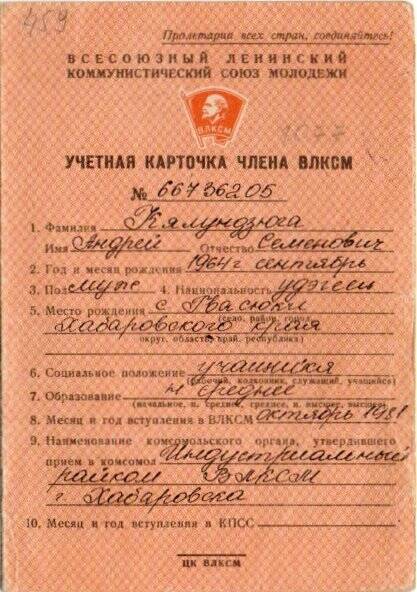 459
Пролетарии всех стран, соединяйтесь!
ВСЕСОЮЗНЫЙ ЛЕНИНСКИЙ
КОММУНИСТИЧЕСКИЙ СОЮЗ МОЛОДЕЖИ
ВЛКСМ
1077
УЧЕТНАЯ КАРТОЧКА ЧЛЕНА ВЛКСМ
№ 66736205
1. Фамилия Кялундзюга
Имя Андрей Отчество Семенович
2. Год и месяц рождения 1964 г сентябрь
3. Пол муж 4. Национальность удэгеец
5. Место рождения с Гвасюки
(село, район, город,
Хабаровского края
округ, область, край, республика)
6. Социальное положение учащийся
(рабочий, колхозник, служащий, учащийся)
7. Образование н среднее
(начальное, н. среднее, среднее, н. высшее, высшее)
8. Месяц и год вступления в ВЛКСМ октябрь 1981
9. Наименование комсомольского органа, утвердившего
прием в комсомол Индустриальный
райком ВЛКСМ
г. Хабаровска
10. Месяц и год вступления в КПСС
ЦК ВЛКСМ